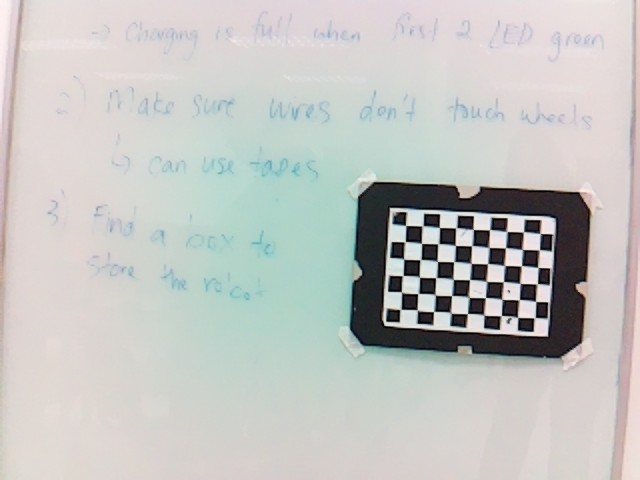 -> Charging is full when first 2 LED green
2) Make sure wires don't touch wheels
↳ can use tapes
3) Find a box to
store the robot